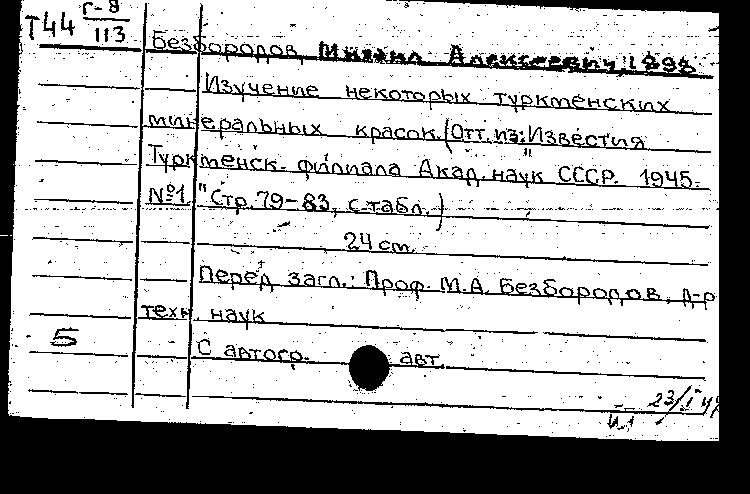 Т44 Г-8
113
Безбородов, Михаил Алексеевич, 1898
Изучение некоторых туркменских
минеральных красок. (Отт. из: "Известия
Туркменск. филиала Акад. наук СССР. 1945.
№1" Стр. 79-83, с табл.)
24 cm.
Перед загл.: Проф. М.А. Безбородов, д-р
техн. наук
5
С автогр. авт.
23/I